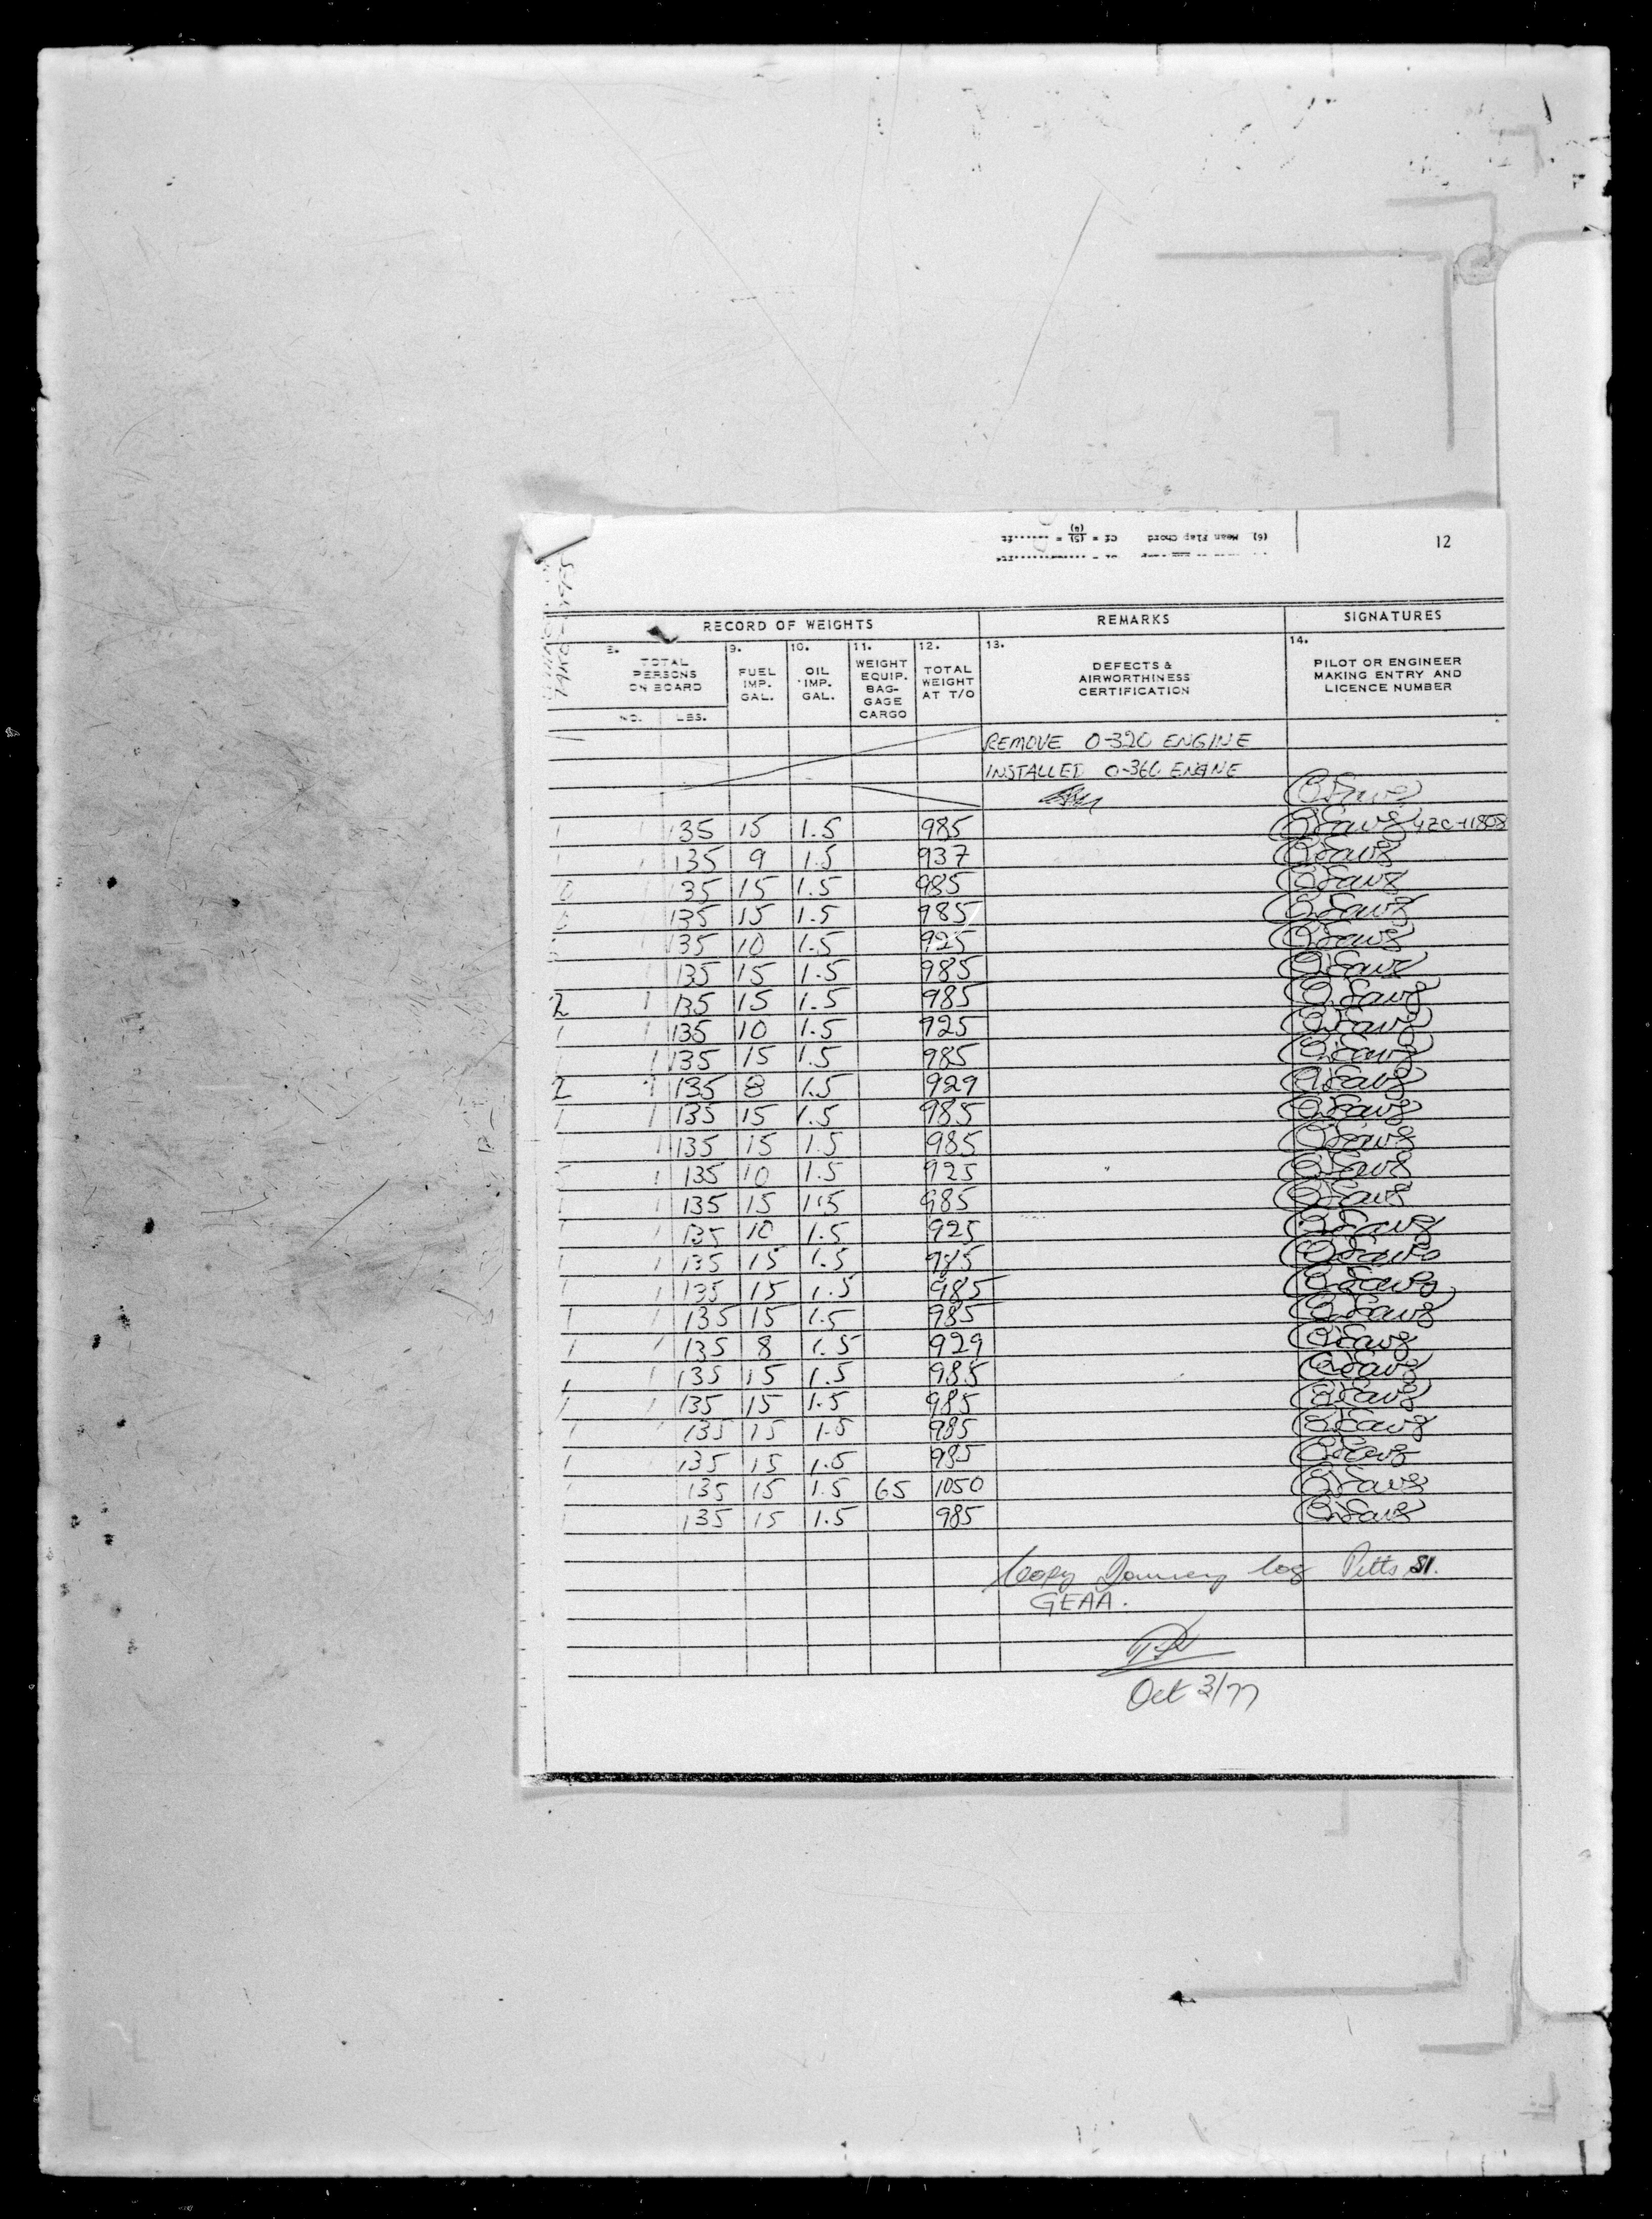 12
RECORD OF WEIGHTS REMARKS SIGNATURES
8. TOTAL PERSONS ON BOARD 9. FUEL IMP. GAL. 10. OIL IMP. GAL. 11. WEIGHT EQUIP. BAG- GAGE CARGO 12. TOTAL WEIGHT AT T/O 13. DEFECTS & AIRWORTHINESS CERTIFICATION 14. PILOT OR ENGINEER MAKING ENTRY AND LICENCE NUMBER
NO. LBS.
REMOVE O-320 ENGINE
INSTALLED O-360 ENGINE
1 1 135 15 1.5 985
1 1 135 9 1.5 937
0 1 135 15 1.5 985
135 15 1.5 985
1 135 10 1.5 925
1 135 15 1.5 985
2 1 135 15 1.5 985
1 1 135 10 1.5 925
1 1 135 15 1.5 985
2 1 135 8 1.5 929
1 1 135 15 1.5 985
1 135 15 1.5 985
1 135 10 1.5 925
1 1 135 15 1.5 985
1 1 135 10 1.5 925
1 1 135 15 1.5 985
1 1 135 15 1.5 985
1 1 135 15 1.5 985
1 1 135 8 1.5 929
1 1 135 15 1.5 985
1 1 135 15 1.5 985
1 1 135 15 1.5 985
1 135 15 1.5 985
1 135 15 1.5 65 1050
1 135 15 1.5 985
log Pitts S1.
GEAA.
Oct 3/77
(6) Mean Flap Chord Cf = (5) / (4) = ......ft